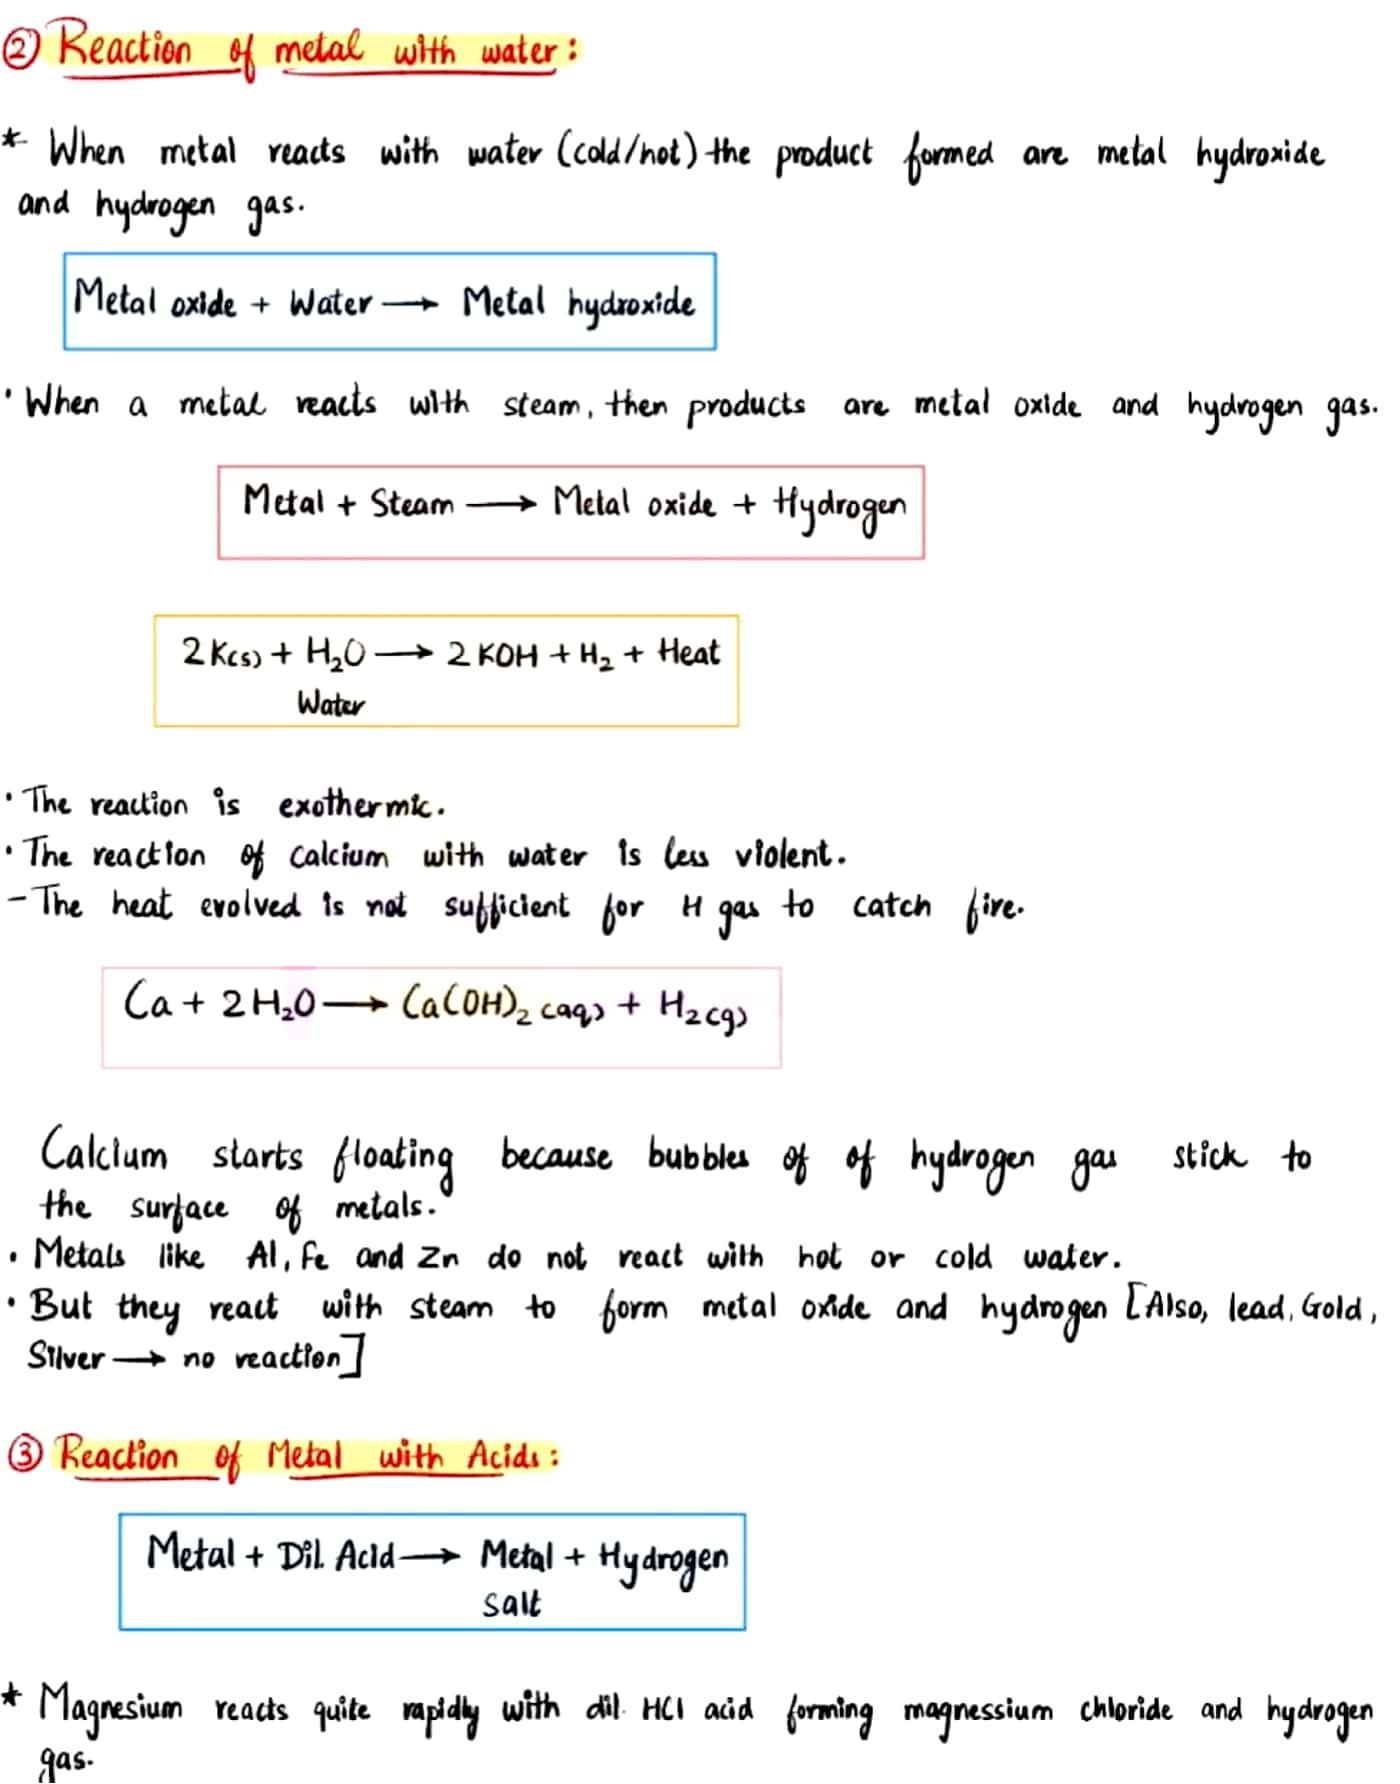 ② Reaction of metal with water:
* When metal reacts with water (cold/hot) the product formed are metal hydroxide
and hydrogen gas.
Metal oxide + Water ⟶ Metal hydroxide
• When a metal reacts with steam, then products are metal oxide and hydrogen gas.
Metal + Steam ⟶ Metal oxide + Hydrogen
2K(s) + H₂O ⟶ 2KOH + H₂ + Heat
Water
• The reaction is exothermic.
• The reaction of Calcium with water is less violent.
- The heat evolved is not sufficient for H gas to catch fire.
Ca + 2H₂O ⟶ Ca(OH)₂ (aq) + H₂(g)
Calcium starts floating because bubbles of of hydrogen gas stick to
the surface of metals.
• Metals like Al, Fe and Zn do not react with hot or cold water.
• But they react with steam to form metal oxide and hydrogen [Also, lead, Gold,
Silver ⟶ no reaction]
③ Reaction of Metal with Acids:
Metal + Dil. Acid ⟶ Metal + Hydrogen
Salt
* Magnesium reacts quite rapidly with dil. HCl acid forming magnessium chloride and hydrogen
gas.